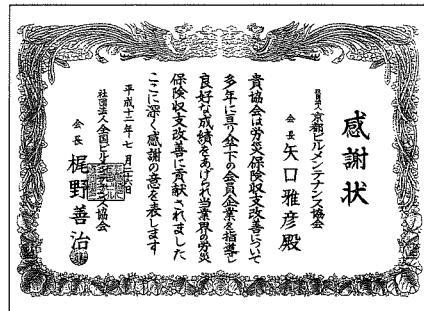 感謝状
社団法人 京都ビルメンテナンス協会
会長 矢口雅彦殿
貴協会は労災保険収支改善について
多年に亘り傘下の会員企業を指導し
良好な成績をあげられ当業界の労災
保険収支改善に貢献されました
ここに深く感謝の意を表します
平成十二年七月 日
社団法人全国ビルメンテナンス協会
会長 梶野善治